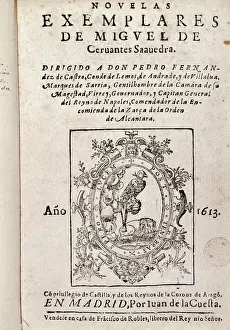 NOVELAS
EXEMPLARES
DE MIGVEL DE
Ceruantes Saauedra.
DIRIGIDO A DON PEDRO FERNAN-
dez de Castro, Conde de Lemos, de Andrade, y de Villalua,
Marques de Sarria, Gentilhombre de la Camara de su
Magestad, Virrey, Gouernador, y Capitan General
del Reyno de Napoles, Comendador de la En-
comienda de la Zarça de la Orden
de Alcantara.
Año 1613.
Cõ priuilegio de Castilla, y de los Reynos de la Corona de Aragõ.
EN MADRID, Por Iuan de la Cuesta.
Vendese en casa de Frãcisco de Robles, librero del Rey nro Señor.